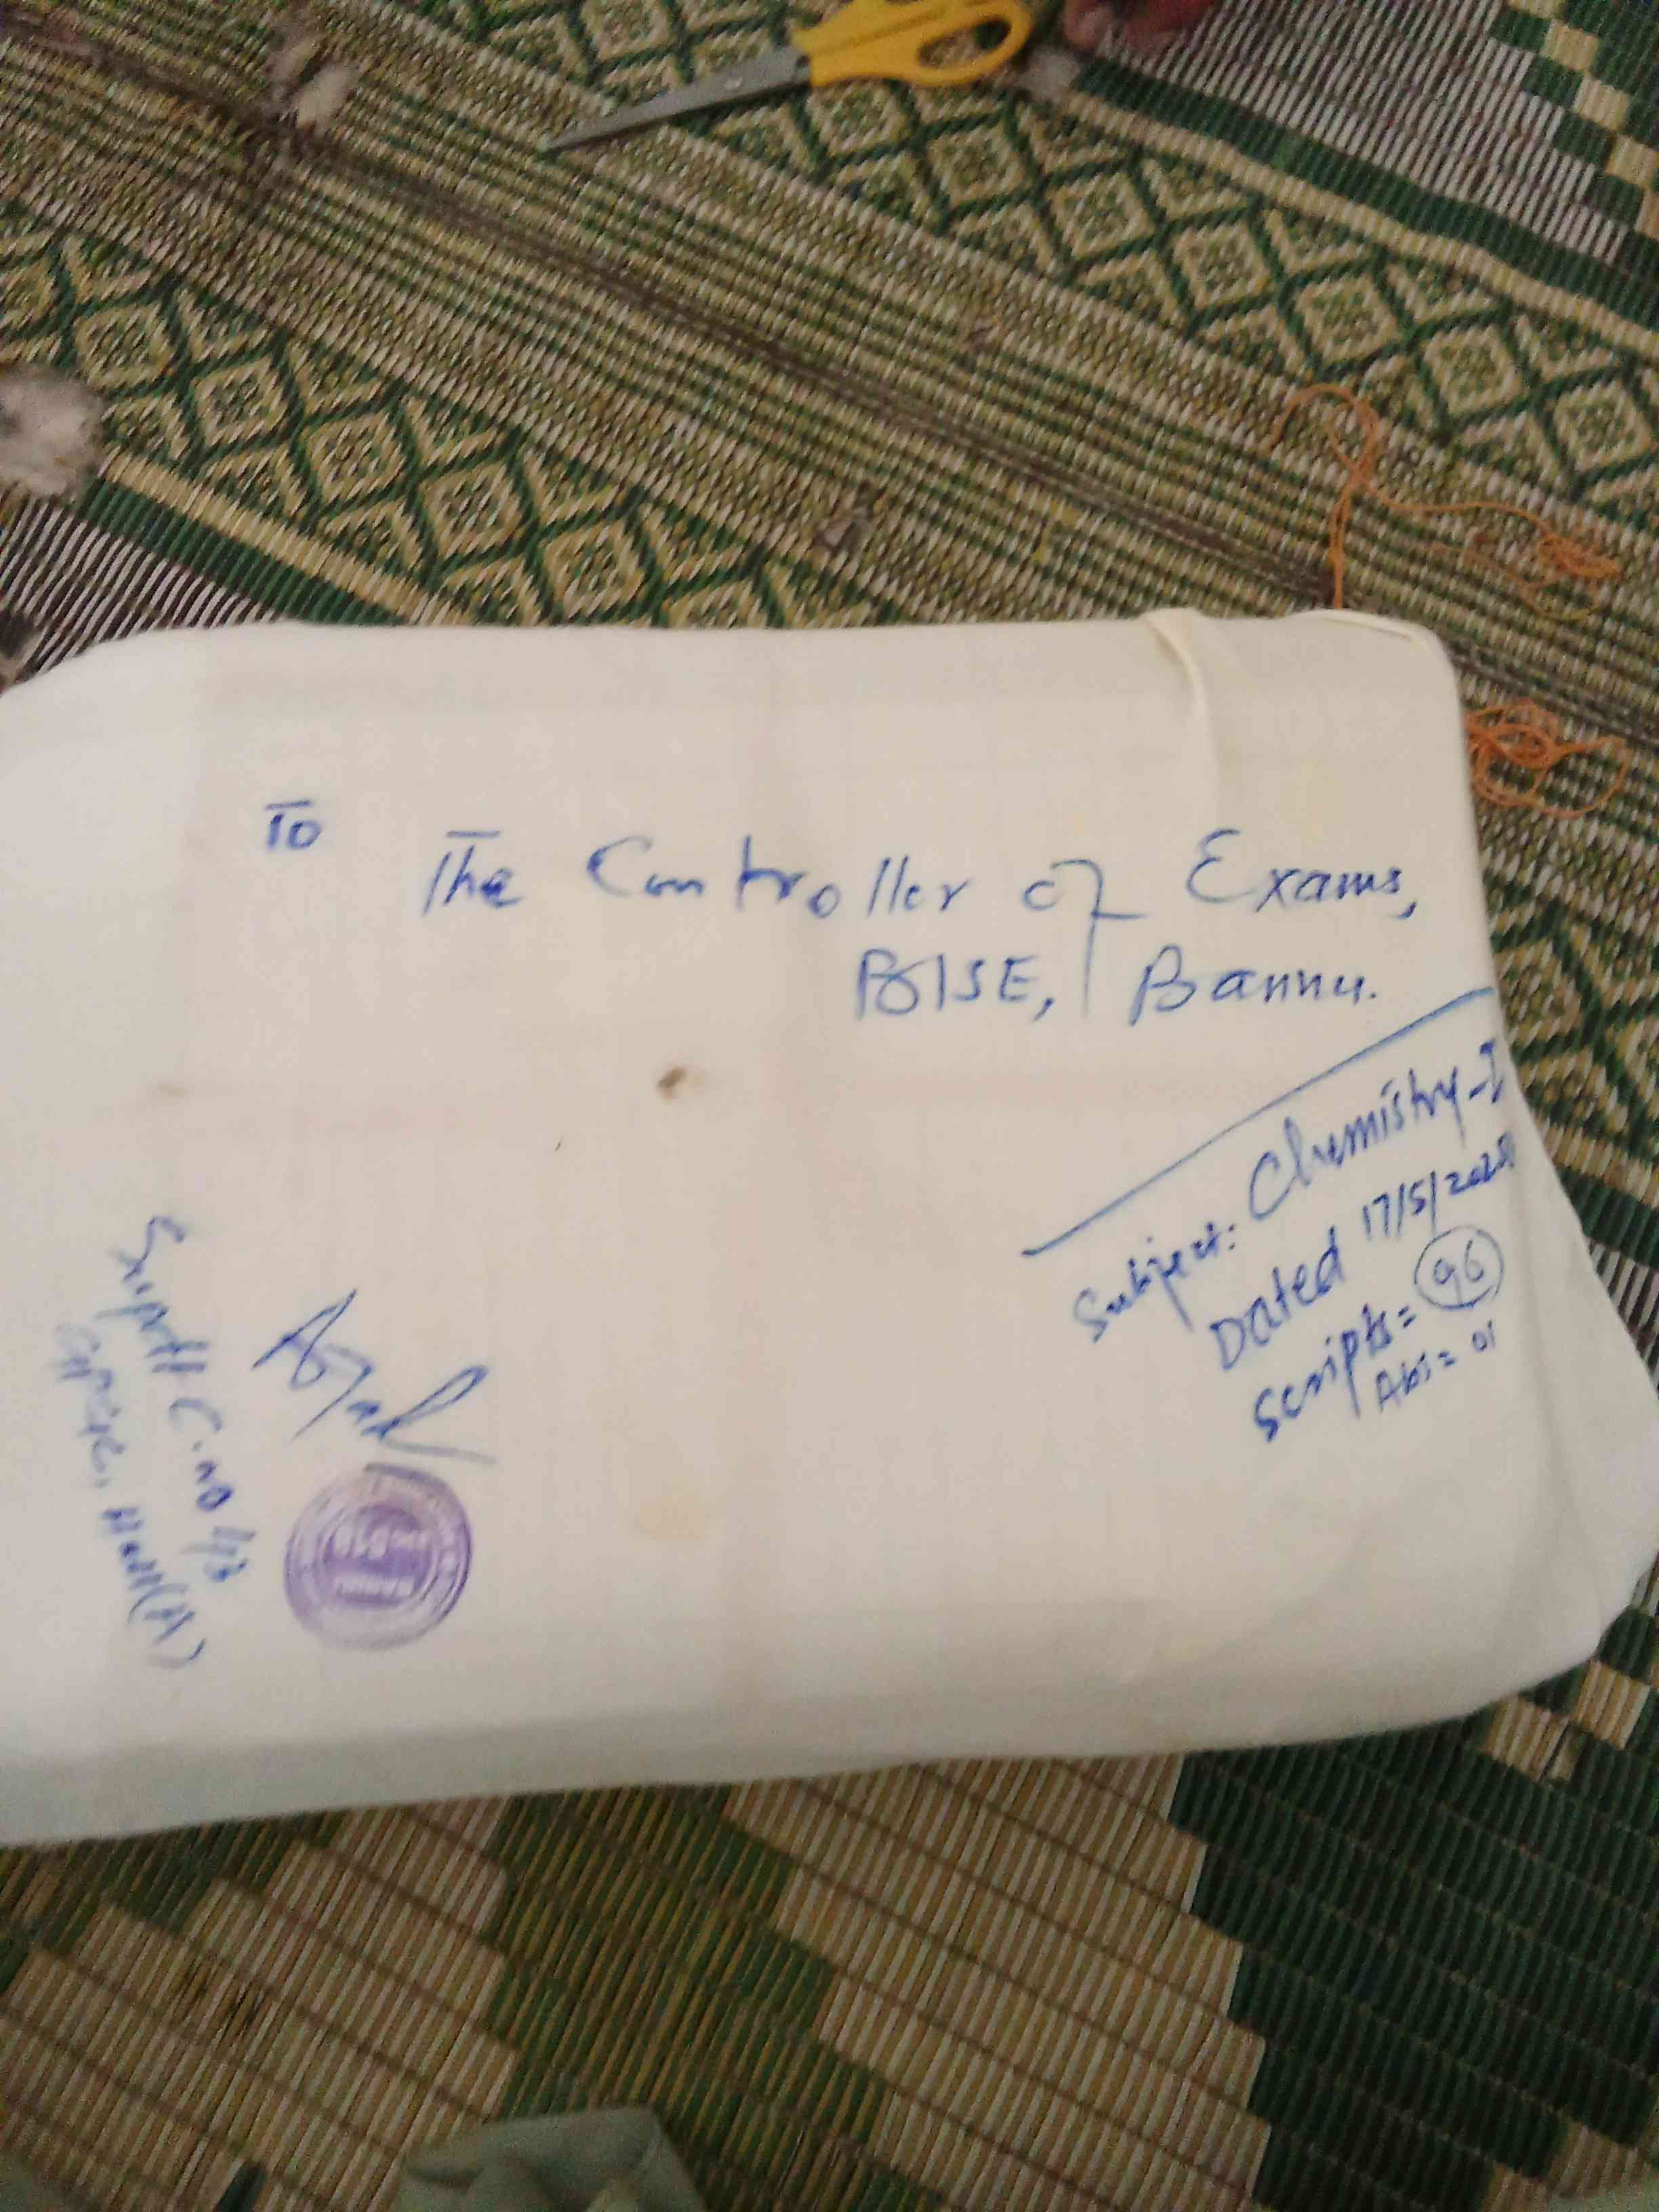 To
The Controller of Exams,
BISE, Bannu.
Subject: Chemistry-I
Dated 17/5/2025
Scripts = 96
Abs = 01
Supdtt C.no 113
Hall (A)
BANNU